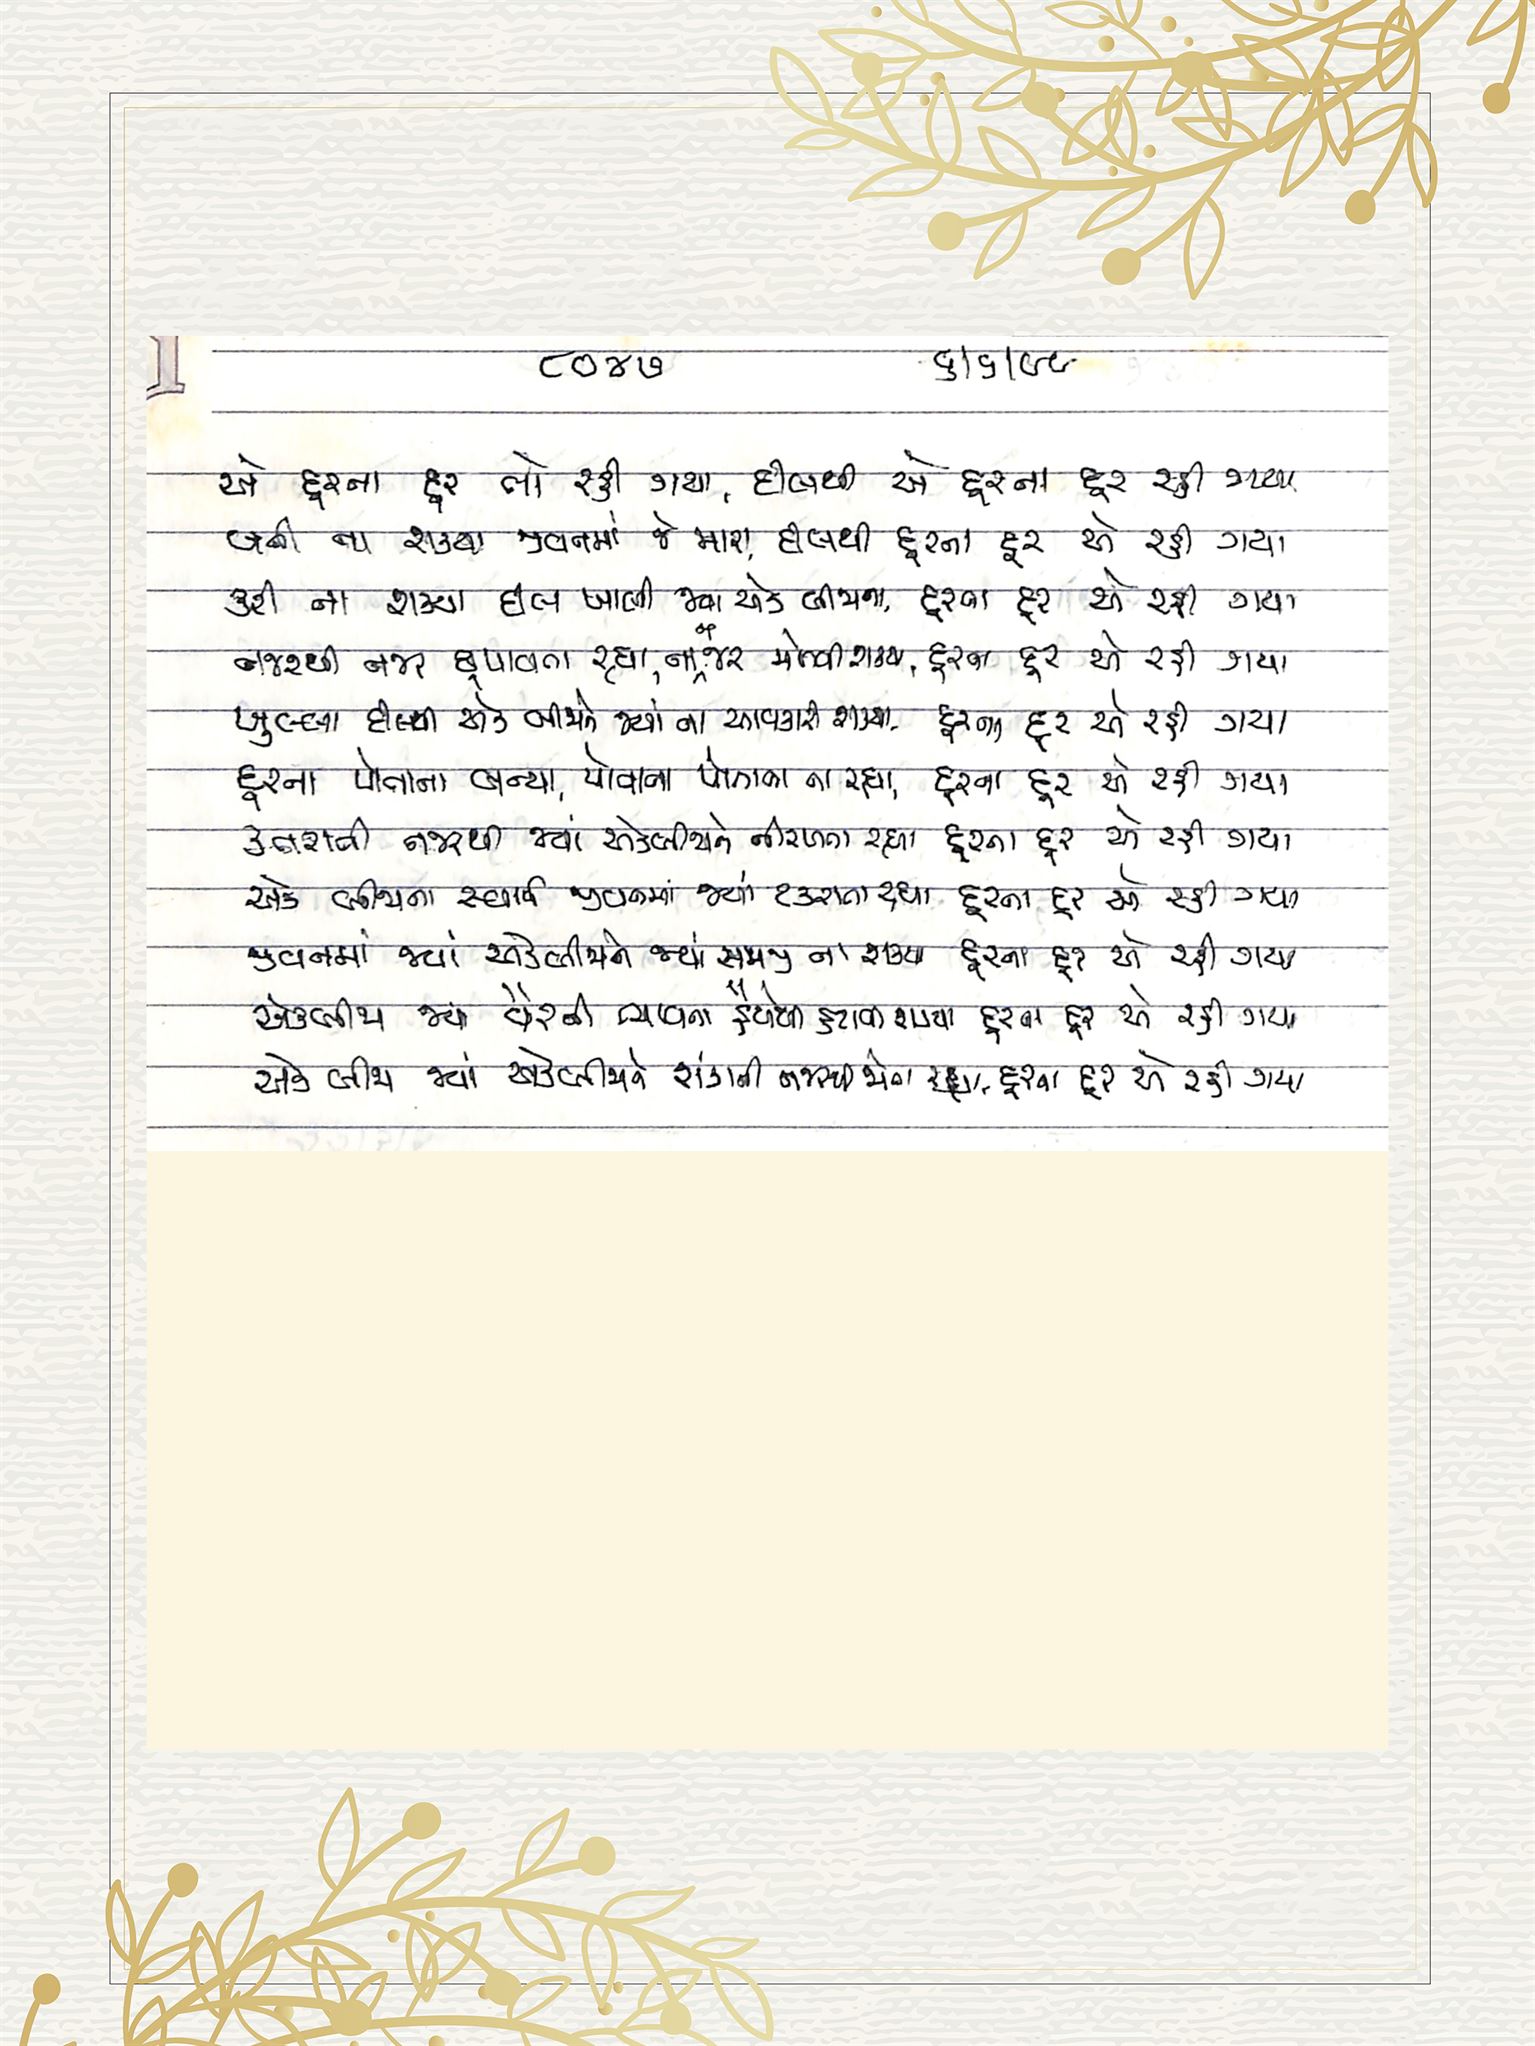 ૮૦૪૭ ૬/૬/૯૯
એ દૂરના દૂર તો રહી ગયા, દીલથી એ દૂરના દૂર રહી ગયા
બની ના શક્યા જીવનમાં જે મારા, દીલથી દૂરના દૂર એ રહી ગયા
કરી ના શક્યા દીલ ખાલી જ્યાં એક બીજાના, દૂરના દૂર એ રહી ગયા
નજરથી નજર છૂપાવતા રહ્યા, ના નજર મેળવી શક્યા, દૂરના દૂર એ રહી ગયા
ખુલ્લા દીલથી એક બીજાને જ્યાં ના આવકારી શક્યા, દૂરના દૂર એ રહી ગયા
દૂરના પોતાના બન્યા, પોતાના પોતાના ના રહ્યા, દૂરના દૂર એ રહી ગયા
નજરથી જ્યાં એકબીજાને નીરખતા રહ્યા દૂરના દૂર એ રહી ગયા
એક બીજાના સ્વાર્થ જીવનમાં જ્યાં ટકરાતા રહ્યા દૂરના દૂર એ રહી ગયા
જીવનમાં જ્યાં એકબીજાને જ્યાં સમજી ના શક્યા દૂરના દૂર એ રહી ગયા
એકબીજા જ્યાં વૈરની ભાવના હૈયેથી હટાવી શક્યા દૂરના દૂર એ રહી ગયા
એક બીજા જ્યાં એકબીજાને શંકાની નજરથી જોતા રહ્યા, દૂરના દૂર એ રહી ગયા